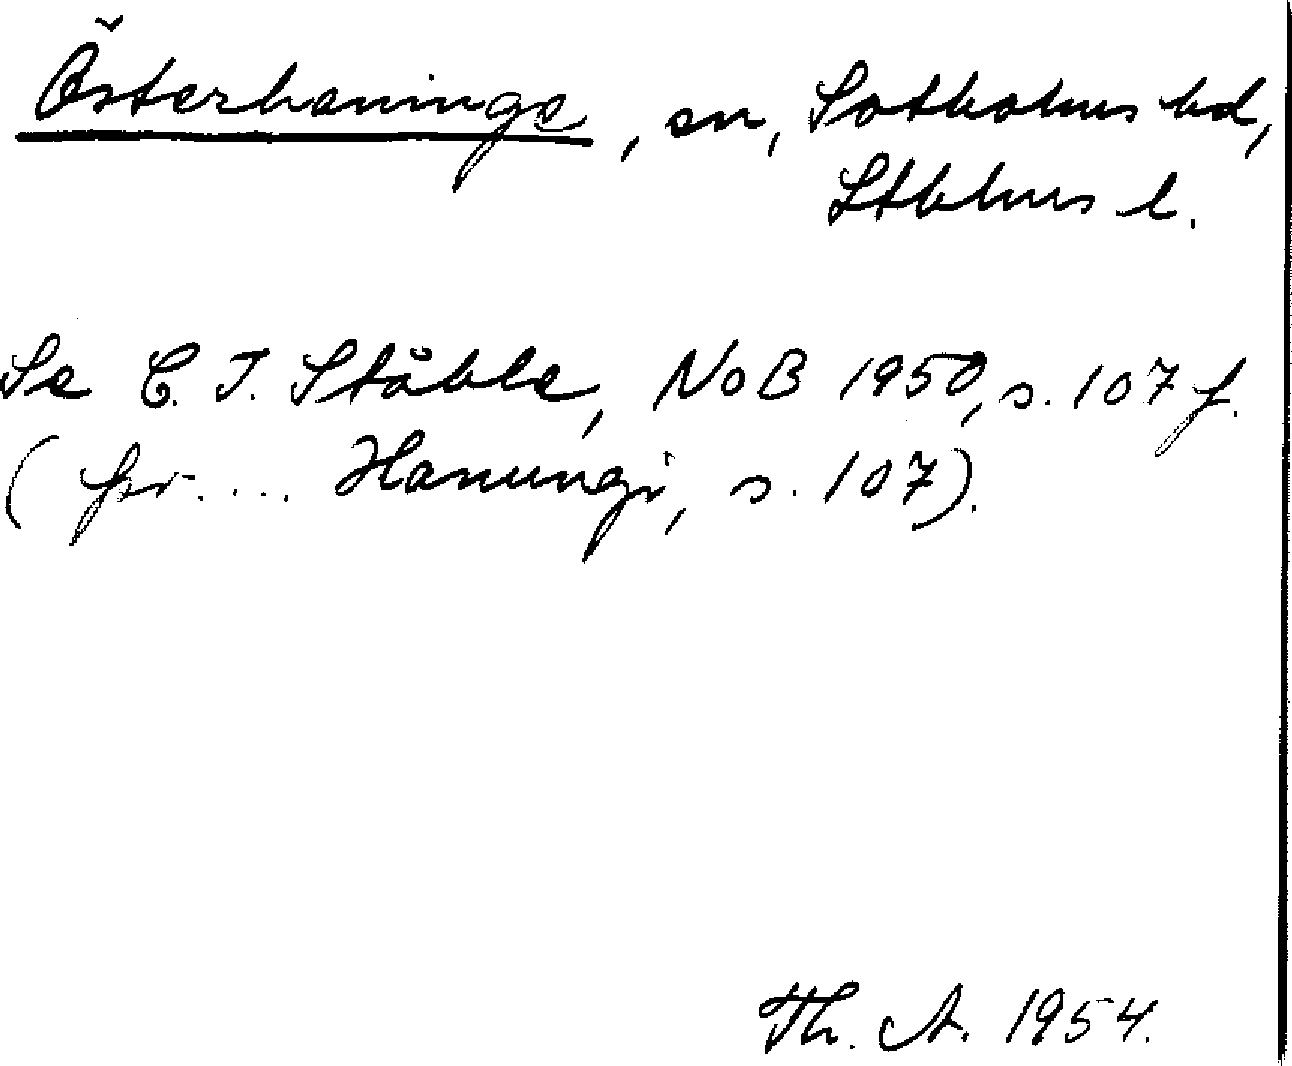 Österhaninge, sn, Sotholms hd,
Sthlms l.
Se C. I. Ståhle, NoB 1950, s. 107 f.
(fsv. ... Hanungi, s. 107).
Th. A. 1954.